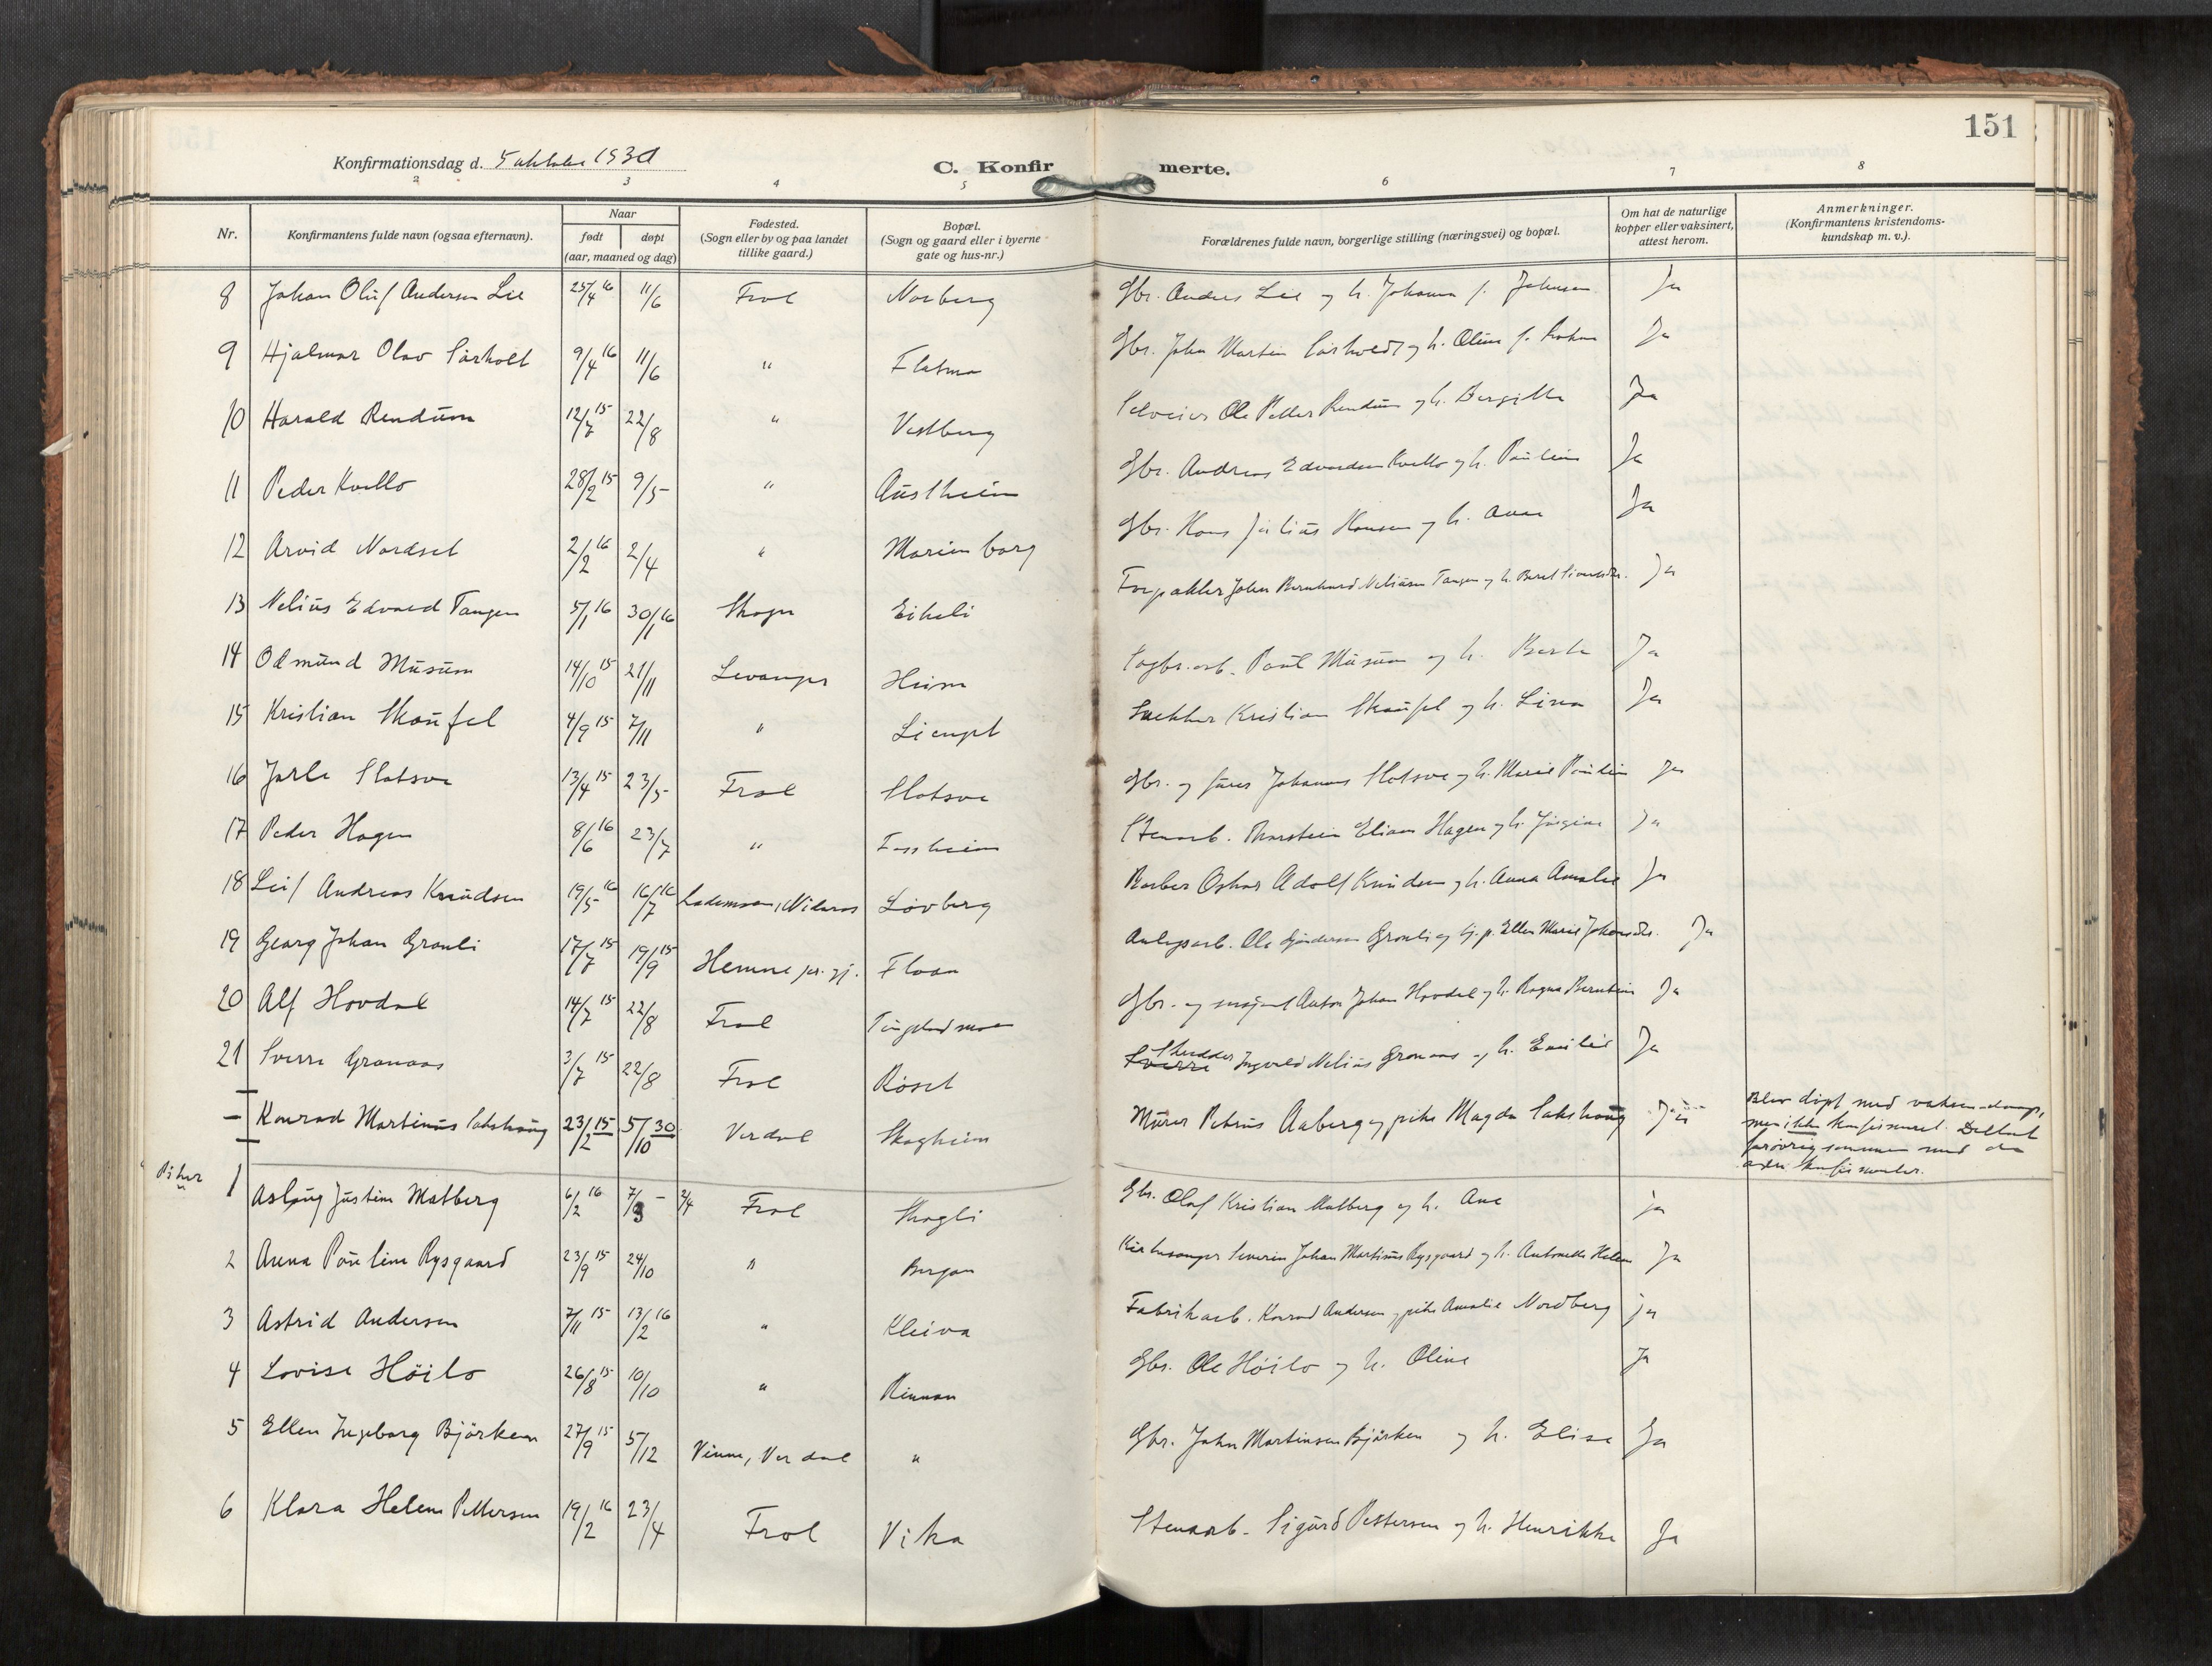 151
Konfirmationsdag d. 5 oktober 1930
C. Konfirmerte.
2 3 4 5 6 7 8
Nr.
Konfirmantens fulde navn (ogsaa efternavn).
Naar
født døpt
(aar, maaned og dag)
Fødested.
(Sogn eller by og paa landet
tillike gaard.)
Bopæl.
(Sogn og gaard eller i byerne
gate og hus-nr.)
Forældrenes fulde navn, borgerlige stilling (næringsvei) og bopæl.
Om hat de naturlige
kopper eller vaksinert,
attest herom.
Anmerkninger.
(Konfirmantens kristendoms-
kundskap m. v.).
8 Johan Oluf Andersen Lie 25/4 16 11/6 Frol Norberg Gbr. Anders Lie og h. Johanna f. Johnsen Ja
9 Hjalmar Olav Sørholt 9/4 16 11/6 " Flatmo Gbr. John Martin Sørholdt og h. Oline f. Ja
10 Harald Rendum 12/7 15 22/8 " Vestberg Selveier Ole Petter Rendum og h. Bergitte Ja
11 Peder Kvello 28/2 15 9/5 " Austheim Gbr. Andreas Edvardsen Kvello og h. Pauline Ja
12 Arvid Nordset 2/2 16 2/4 " Marienborg Gbr. Hans Julius Hansen og h. Anna Ja
13 Nelius Edvard Tangen 5/1 16 30/1 16 Skogn Eikeli Forpakter Johan Bernhard Neliusen Tangen og h. Beret Ja
14 Odmund Musum 14/10 15 21/11 Levanger Heim Sagbr.arb. Paul Musum og h. Berta Ja
15 Kristian Skaufel 4/9 15 7/11 " Liengst Snekker Kristian Skaufel og h. Lina Ja
16 Jarle Slotsve 13/4 15 23/5 Frol Slotsve Gbr. og Johannes Slotsve og h. Marie Pauline Ja
17 Peder Hagen 8/6 16 23/7 " Fossheim Stenarb. Torstein Elian Hagen og h. Jørgine Ja
18 Leif Andreas Knudsen 19/5 16 16/7 16 Lademoen, Nidaros Løvberg Barber Oskar Adolf Knudsen og h. Anna Amalie Ja
19 Georg Johan Gronli 17/7 15 19/9 15 Hemne pr.gj. Floan Anlegsarb. Ole Gronli og Ellen Marie Johansdtr. Ja
20 Alf Hovdal 14/7 15 22/8 Frol Tingstadmoen Gbr. og Anton Johan Hovdal og h. Ragna Berntine Ja
21 Sverre Gronaas 3/7 15 22/8 Frol Røset Sverre Skredder Ingvald Nelius Gronaas og h. Emilie Ja
– Konrad Martinus Sakshaug 23/2 15 5/10 30 Verdal Skogheim Murer Petrus Aaberg og pike Magda Sakshaug Ja
Blev døpt med voksen-daap,
men ikke konfirmeret. Deltok
forøvrig sammen med de
andre konfirmanter.
Piker
1 Aslaug Justine Matberg 6/2 16 7/3 – 2/4 Frol Skogli Gbr. Olaf Kristian Matberg og h. Ane ja
2 Anna Pauline Rysgaard 23/9 15 24/10 " Borgan Kirkesanger Severin Johan Martinus Rysgaard og h. Antonette Helene Ja
3 Astrid Andersen 7/11 15 13/2 16 " Kleiva Fabrikarb. Konrad Andersen og pike Amalie Nordberg ja
4 Lovise Höilo 26/8 15 10/10 " Rinnan Gbr. Ole Höilo og h. Oline Ja
5 Ellen Ingeborg Björken 27/9 15 5/12 Vinne, Verdal " Gbr. John Martinsen Björken og h. Elise Ja
6 Klara Helene Pettersen 19/2 16 23/4 Frol Vika Stenarb. Sigurd Pettersen og h. Henrikke Ja